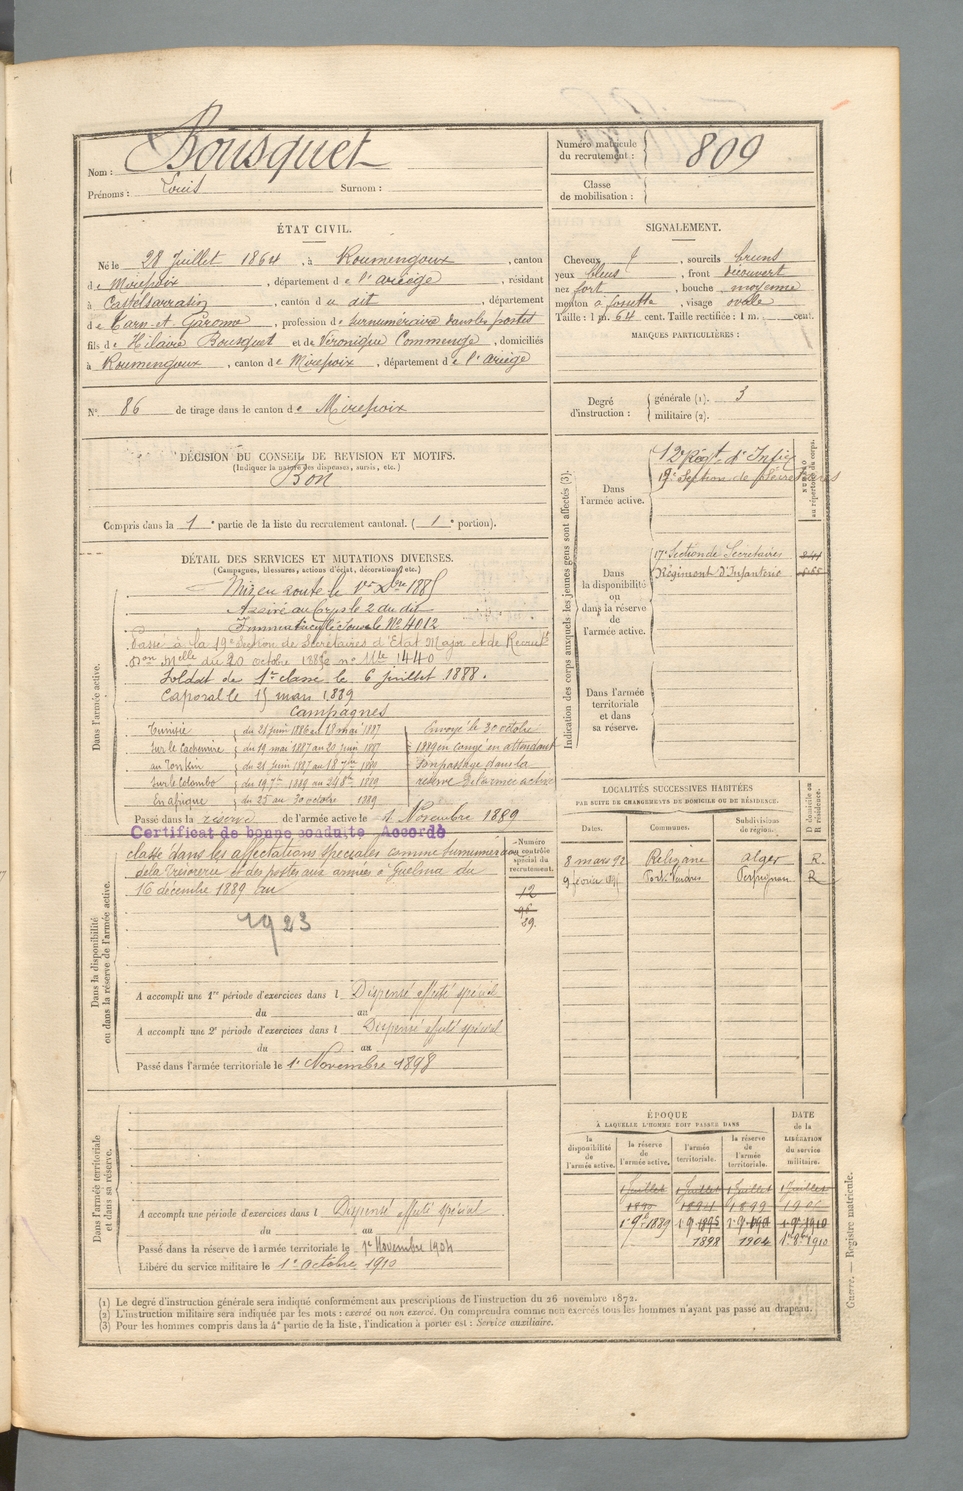 Nom : Bousquet
Prénoms : Louis Surnom :
Numéro matricule du recrutement : 809
Classe de mobilisation :
ÉTAT CIVIL.
Né le 28 Juillet 1864, à Roumengoux, canton
de Mirepoix, département de l'Ariège, résidant
à Castelsarrasin, canton du dit, département
de Tarn-et-Garonne, profession de surnuméraire dans les postes
fils de Hilaire Bousquet et de Véronique Commenge, domiciliés
à Roumengoux, canton de Mirepoix, département de l'Ariège
N° 86 de tirage dans le canton de Mirepoix
SIGNALEMENT.
Cheveux , sourcils bruns
yeux bleus, front découvert
nez fort, bouche moyenne
menton à fossette, visage ovale
Taille : 1 m. 64 cent. Taille rectifiée : 1 m. cent.
MARQUES PARTICULIÈRES :
Degré d'instruction : générale (1). 3
militaire (2).
DÉCISION DU CONSEIL DE REVISION ET MOTIFS.
(Indiquer la nature des dispenses, sursis, etc.)
Bon
Compris dans la 1e partie de la liste du recrutement cantonal. (1e portion).
DÉTAIL DES SERVICES ET MUTATIONS DIVERSES.
(Campagnes, blessures, actions d'éclat, décorations, etc.)
Dans l'armée active.
Mis en route le 1er Xbre 1885
Arrivé au Corps le 2 du dit
Immatriculé sous le N° 4012
Passé à la 19e Section de Secrétaires d'Etat Major et de Recrutt
Don Melle du 20 octobre n° Mle 1440
Soldat de 1re classe le 6 juillet 1888.
Caporal le 15 mars 1889
Campagnes
Tunisie du 21 juin 1886 au 18 mai 1887
Sur le Cachemire du 19 mai 1887 au 20 juin 1887
au Tonkin du 21 juin 1887 au 18 7bre 1889
Sur le Colombo du 19 7bre 1889 au 24 8bre 1889
En Afrique du 25 au 30 octobre 1889
Envoyé le 30 octobre
1889 en congé en attendant
son passage dans la
réserve de l'armée active
Passé dans la réserve de l'armée active le 1 Novembre 1889
Certificat de bonne conduite Accordé
Dans la disponibilité ou dans la réserve de l'armée active.
classé dans les affectations spéciales comme surnuméraire
de la Trésorerie et des postes aux armées à Guelma du
16 décembre 1889 au
1923
Numéro au contrôle spécial du recrutement.
12
96
39.
A accompli une 1re période d'exercices dans l Dispensé affecté spécial
du au
A accompli une 2e période d'exercices dans l Dispensé affecté spécial
du au
Passé dans l'armée territoriale le 1er Novembre 1898
Dans l'armée territoriale et dans sa réserve.
A accompli une période d'exercices dans l Dispensé affecté spécial
du au
Passé dans la réserve de l'armée territoriale le 1er Novembre 1904
Libéré du service militaire le 1er Octobre 1910
Indication des corps auxquels les jeunes gens sont affectés (3).
NUMÉRO au répertoire du corps.
Dans l'armée active.
12e Régt d'Infie
19e Section de Secrétaires
Dans la disponibilité ou dans la réserve de l'armée active.
17e Section de Secrétaires
Régiment d'Infanterie
Dans l'armée territoriale et dans sa réserve.
LOCALITÉS SUCCESSIVES HABITÉES
PAR SUITE DE CHANGEMENTS DE DOMICILE OU DE RÉSIDENCE.
Dates. Communes. Subdivisions de région. D domicile ou R résidence.
8 mars 92 Relizane Alger R.
9 Port-Vendres Perpignan R
ÉPOQUE
À LAQUELLE L'HOMME DOIT PASSER DANS
la disponibilité de l'armée active. la réserve de l'armée active. l'armée territoriale. la réserve de l'armée territoriale. DATE de la LIBÉRATION du service militaire.
1 Juillet 1 Juillet 1 Juillet 1 Juillet
1890 1894 1899
1er 9bre 1889 1er 9 1895 1er 9 1er 9 1910
1898 1904 1er 8bre 1910
(1) Le degré d'instruction générale sera indiqué conformément aux prescriptions de l'instruction du 26 novembre 1872.
(2) L'instruction militaire sera indiquée par les mots : exercé ou non exercé. On comprendra comme non exercés tous les hommes n'ayant pas passé au drapeau.
(3) Pour les hommes compris dans la 4e partie de la liste, l'indication à porter est : Service auxiliaire.
Guerre. — Registre matricule.